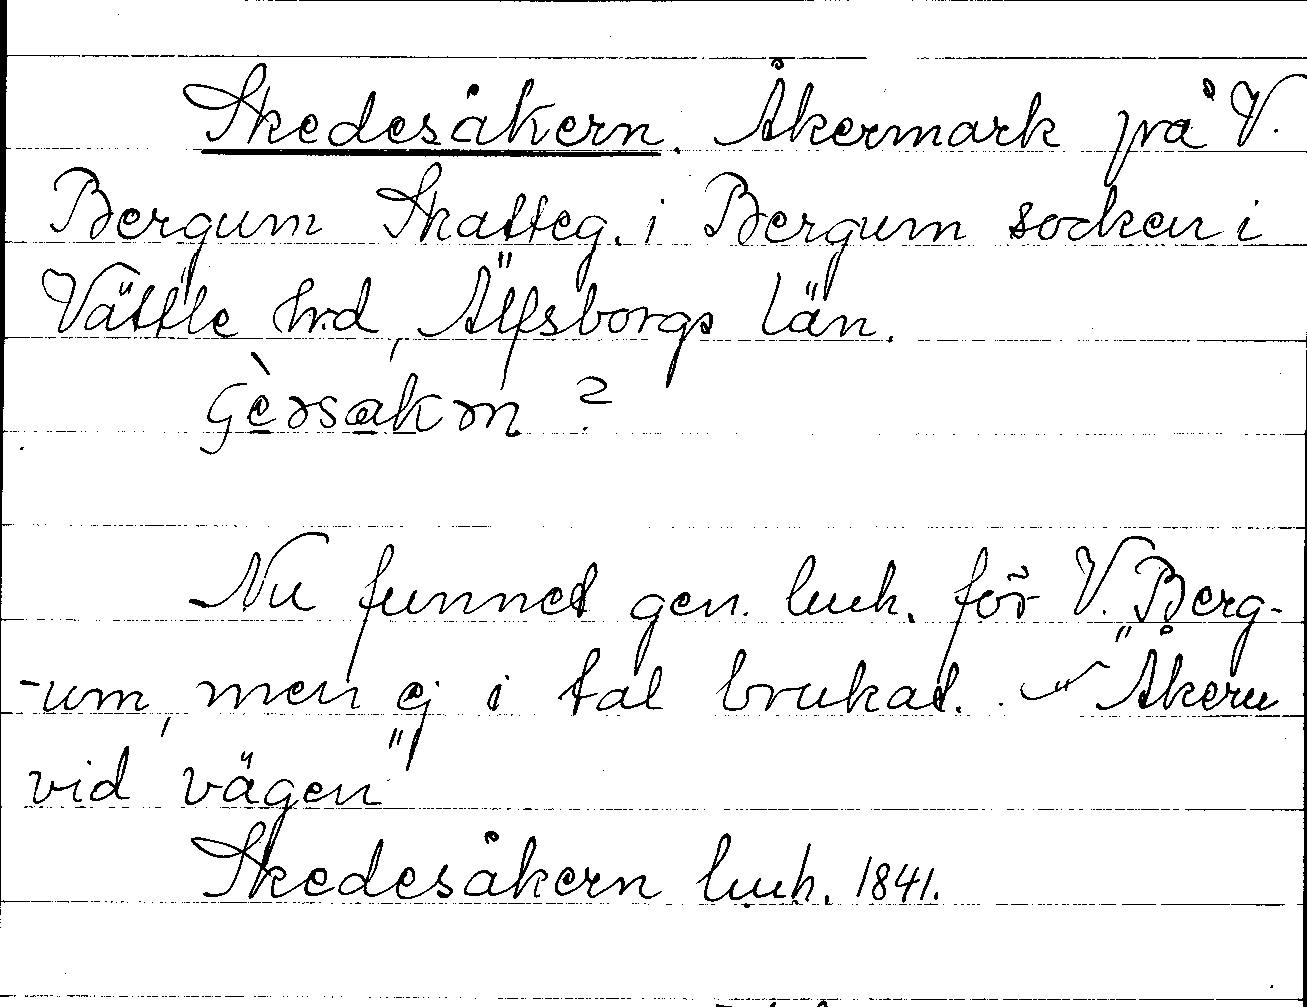 Skedesåkern. Åkermark på V.
Bergum Skatteg. i Bergum socken i
Vättle hrd, Älfsborgs län.
gèrsakrn ?
Nu funnet gen. luh. för V. Berg-
-um, men ej i tal brukat. "Åkern
vid vägen"
Skedesåkern luh. 1841.